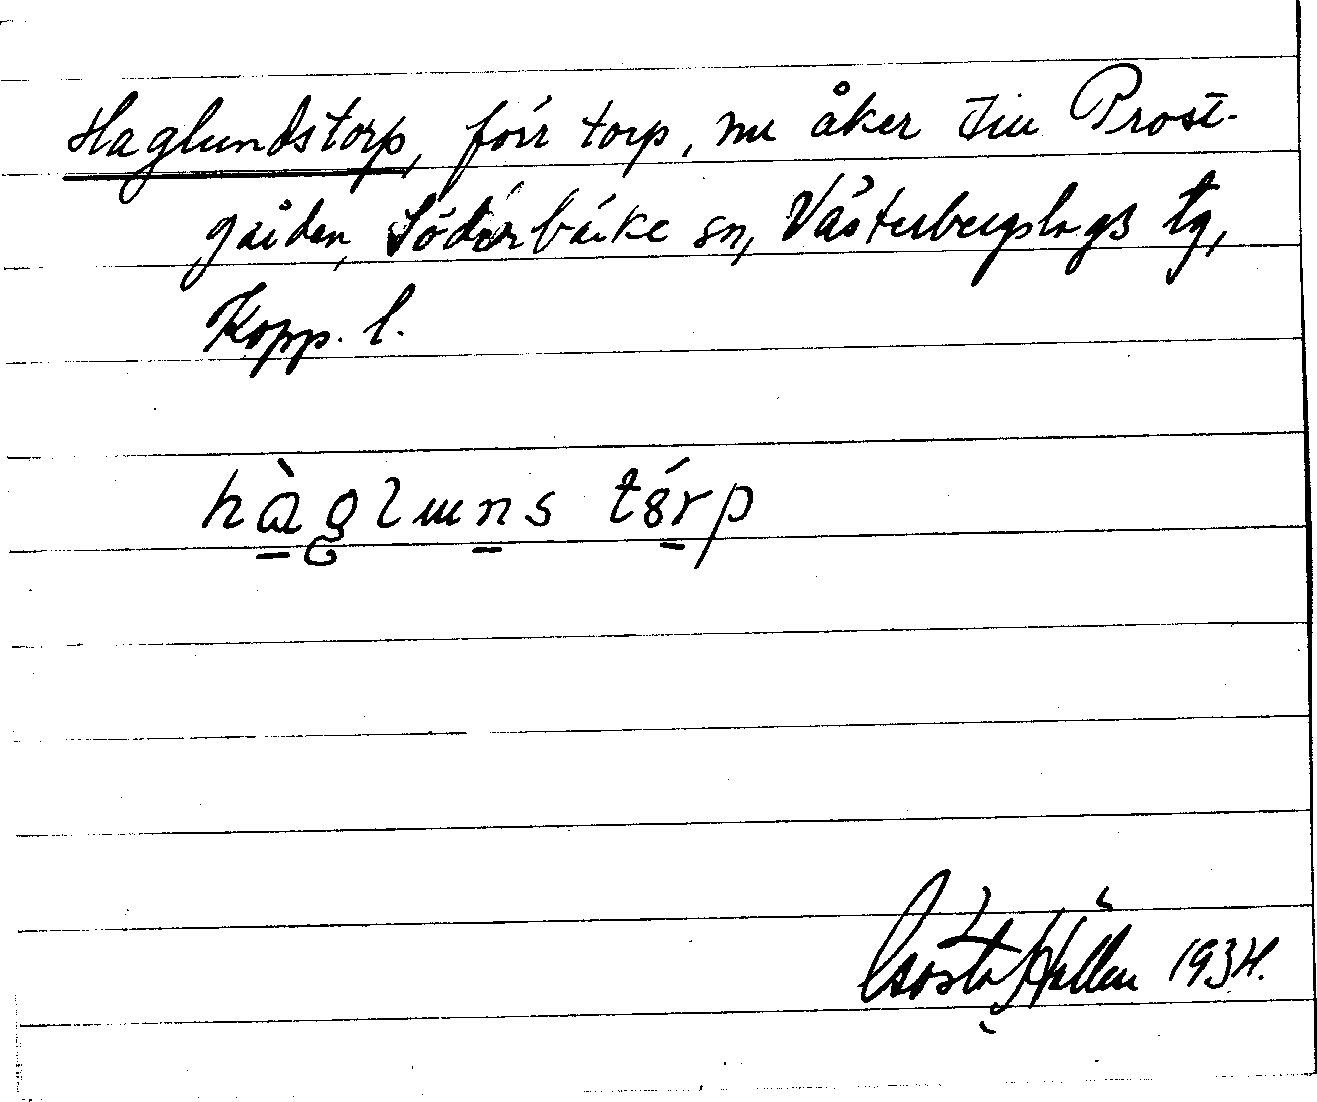 Haglundstorp, förr torp, nu åker till Prost-
gården, Söderbärke sn, Västerbergslags tg,
Kopp. l.
hàglɯns tórp
Gösta Hallén 1934.